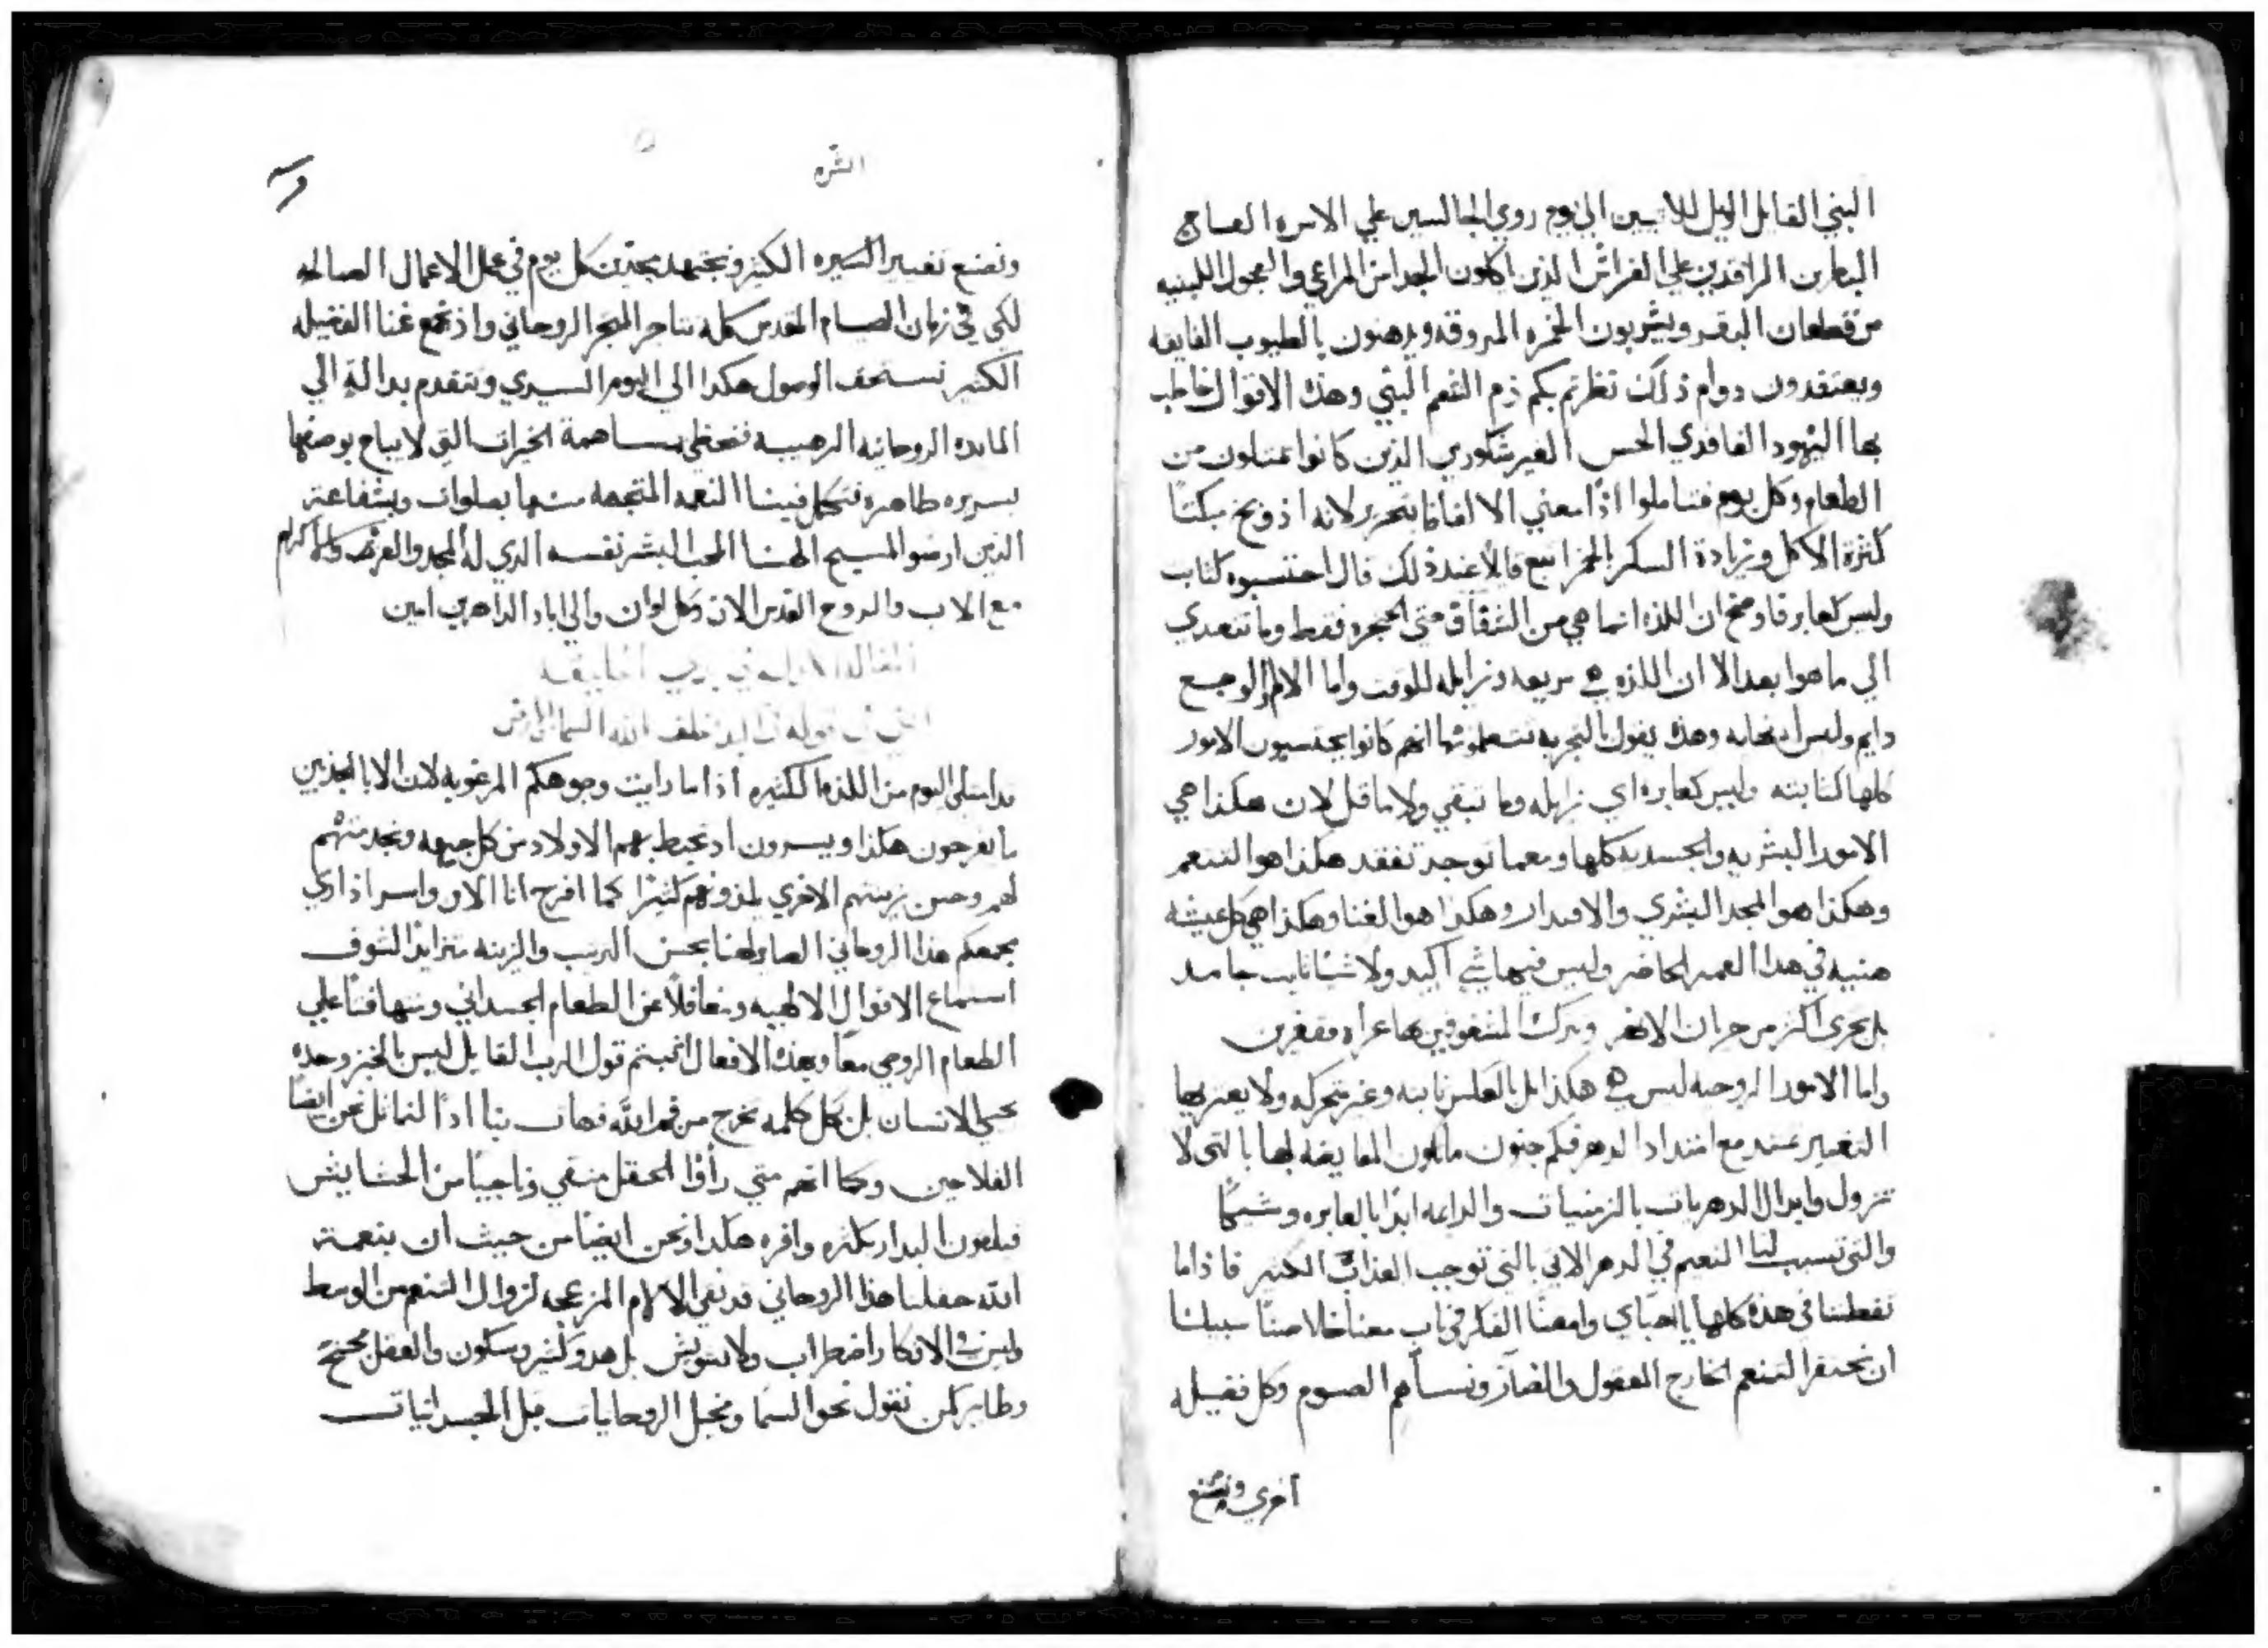 النبي القايل الويل للاتيين الي يوم روي الجالسين علي الاسره العاج
البطرين الراقدين علي الفراش الذين ياكلون الجدا من المراعي والعجول اللبنيه
من قطعان البقر ويشربون الخمره المروقه ويدهنون بالطيوب الفايقه
ويعتقدون دوام ذلك نظرتم بكم ذم التنعم النبي وهذه الاقوال خاطب
بها اليهود الفاقدي الحس الغير شكوري الذين كانوا يمتلون من
الطعام وكل يوم فتاملوا اذًا معني الالفاظ بتحرير لانه اذ وبخ مبكتًا
كثرة الاكل وزيادة السكر بالخمر اتبع قايلاً عند ذلك قال احتسبوه كثابت
وليس كعابر فاوضح ان اللذه انما هي من الشفاق حتي الحنجره فقط وما تتعدي
الي ما هوا بعد الا ان اللذه هي سريعه وزايله للوقت واما الالم والوجع
دايم وليس له نهايه وهذه يقول بالتجربه تتعلمونها انهم كانوا يحتسبون الامور
كلها كثابته وليس كعابره اي زايله وما تبقي ولا ما قل لان هكذا هي
الامور البشريه والجسديه كلها ومعما توجد تفقد هكذا هو التنعم
وهكذا هو المجد البشري والاقتدار وهكذا هوا الغنا وهكذا هي كل عيشه
هنيه في هذا العمر الحاضر وليس فيها شي اكيد ولا شيًا ثابت جامد
بل يجري اكثر من جريان الانهر ويترك المشغوفين بها عراه مفقرين
واما الامور الروحيه ليس هي هكذا بل بالعكس ثابته وغير متحركه ولا يعتريها
التغيير ممتده مع امتداد الدهر فكم جنون ما يكون المقايضه لها بالتي لا
تزول وابدال الدهريات بالزمنيات والدايمه ابدًا بالعابره وشيكًا
والتي تسبب لنا النعيم في الدهر الاتي بالتي توجب العذاب الكثير فاذا ما
تفطننا في هذه كلها يا احباي وامعنا الفكر في باب معنا خلاصنا سبيلنا
ان نحتقر التنعم الخارج المعقول والضار ونسالم الصوم وكل فضيله
اخري ونصنع
الثره
ونصنع تغيير السيره الكثير ونجتهد مجدين كل يوم في عمل الاعمال الصالحه
لكي في زمان الصيام المقدس كله نتاجر المتجر الروحاني واذ نجمع غنا الفضيله
الكثير نستحق الوصول هكذا الي اليوم السيدي ونتقدم بدالةٍ الي
المايده الروحانيه الرهيبه فنحظي بمساهمة الخيرات التي لا يباع بوصفها
بسريره طاهره فتكمل فينا النعمه المتجهه منها بصلوات وبشفاعة
الذين ارضوا المسيح الهنا المحب البشر نفسه الذي له المجد والعز والاكرام
مع الاب والروح القدس الان وكل اوان والي اباد الداهرين امين
المقاله الاوله في
قوله في البدء خلق الله السما والارض
قد امتلي اليوم من اللذه الكثيره اذا ما رايت وجوهكم المرغوبه لان الابا المحبين
ما يفرحون هكذا ويسرون اذ تحيط بهم الاولاد من كل جهه
لهم وحسن زينتهم الاخري يلذونهم كثيرًا كما افرح انا الان واسر اذ اري
مجمعكم هذا الروحاني الصاير هنا بحسن الترتيب والزينه متزايد الشوق
استماع الاقوال الالهيه ومتغافلاً عن الطعام الجسداني ومتهافتًا علي
الطعام الروحي معاً وبهذه الافعال اتممتم قول الرب القايل ليس بالخبز وحده
يحيي الانسان بل بكل كلمه تخرج من فم الله فهات بنا اذًا لنماثل نحن ايضًا
الفلاحين وكما انهم متي رأوا الحقل منقي وناجيًا من الحشايش
فيلقون البدار بكثره وافره هكذا ونحن ايضًا من حيث ان بنعمة
الله حقلنا هذا الروحاني قد نقي الالام المزعجه لزوال التنعم من الوسط
وليس في الافكار اضطراب ولا تشويش بل هدو كثير وسكون والعقل مجنح
وطاير كمن نقول نحو السما ومخيل الروحانيات قبل الجسدانيات